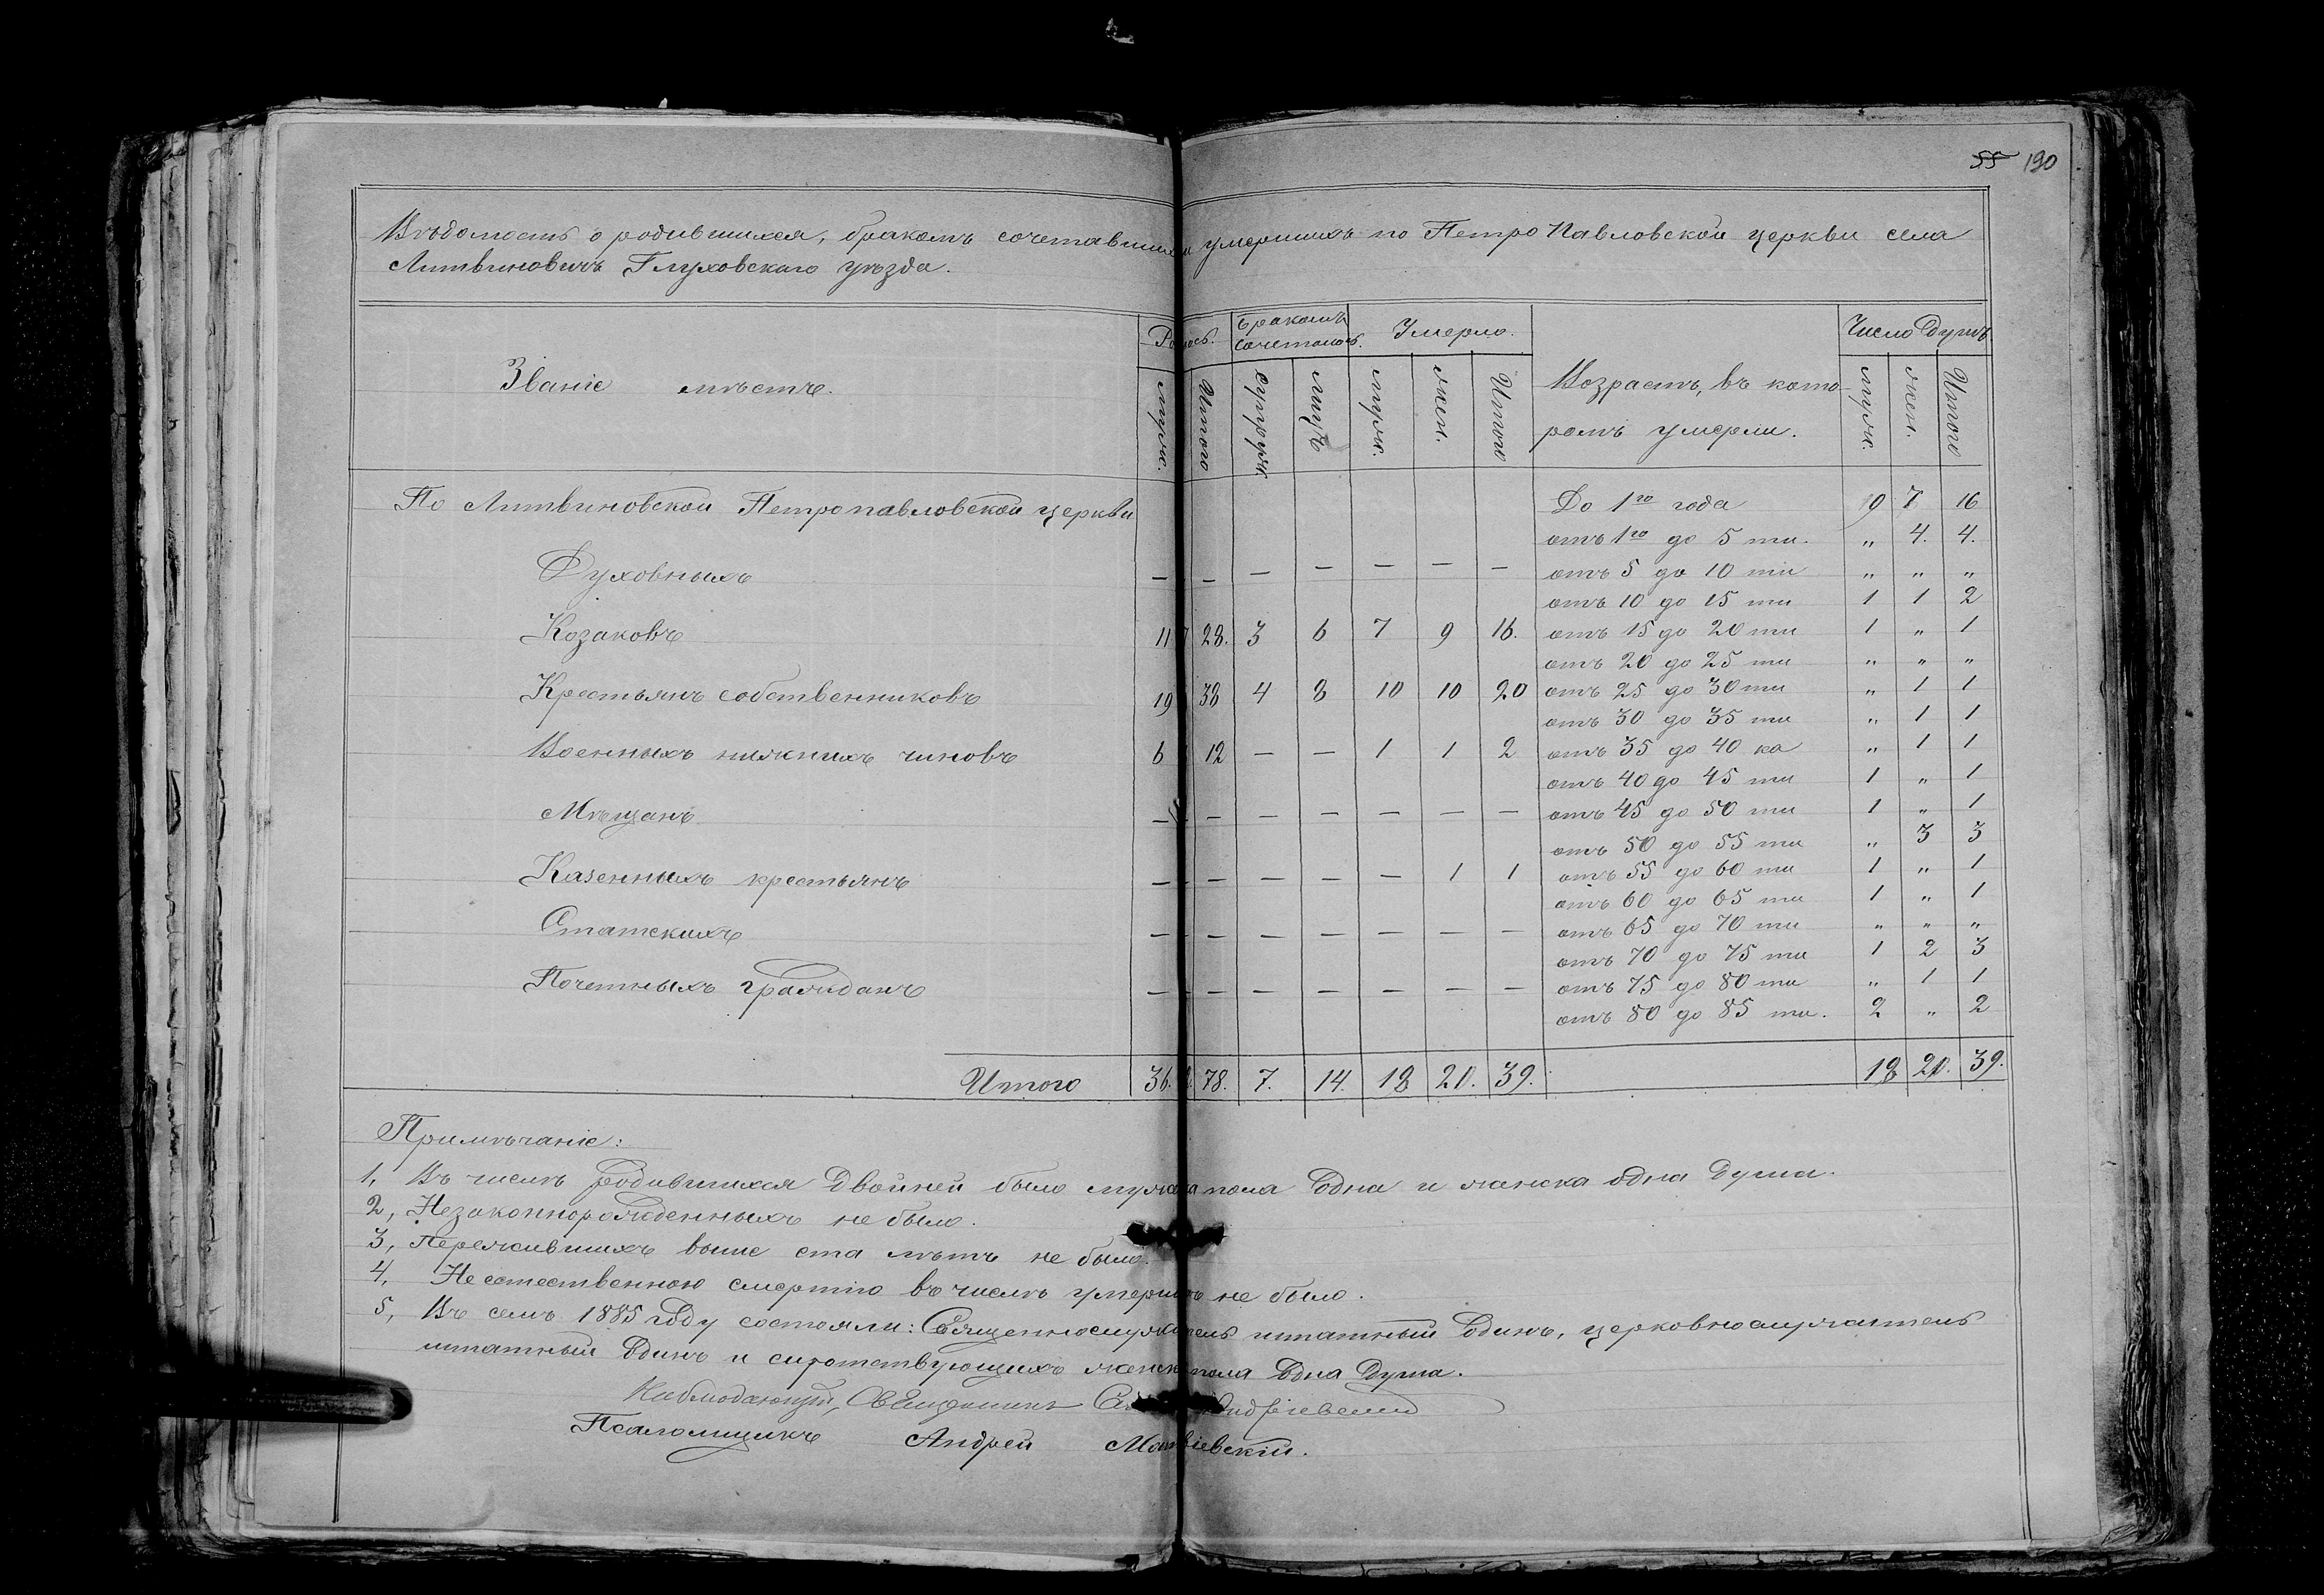 55 190
Вѣдомость о родившихся, бракомъ сочетавшихся умершихъ по Петро Павловской церкви села
Литвиновичъ Глуховскаго уѣзда.
Званіе мѣстъ.
Бракомъ сочеталось.
Умерло.
Возрастъ, въ которомъ умерли.
Число душъ
муж. Итого супруж. лицъ муж. жен. Итого муж. жен. Итого
По Литвиновской Петропавловской церкви
До 1го года 7 16
отъ 1го до 5 ти. „ 4. 4.
Духовныхъ — — — — — — —
отъ 5 до 10 ти „ „ „
отъ 10 до 15 ти 1 1 2
Козаковъ 11 28. 3 6 7 9 16.
отъ 15 до 20 ти 1 „ 1
отъ 20 до 25 ти „ „ „
Крестьянъ собственниковъ 19 38 4 8 10 10 20
отъ 25 до 30 ти „ 1 1
отъ 30 до 35 ти „ 1 1
Военныхъ нижнихъ чиновъ 6 12 — — 1 1 2
отъ 35 до 40 ка „ 1 1
отъ 40 до 45 ти 1 „ 1
Мѣщанъ — — — — — — —
отъ 45 до 50 ти 1 „ 1
отъ 50 до 55 ти „ 3 3
Казенныхъ крестьянъ — — — — — 1 1
отъ 55 до 60 ти 1 „ 1
отъ 60 до 65 ти 1 „ 1
Статскихъ — — — — — — —
отъ 65 до 70 ти „ „ „
отъ 70 до 75 ти 1 2 3
Почетныхъ гражданъ — — — — — — —
отъ 75 до 80 ти „ 1 1
отъ 80 до 85 ти. 2 „ 2
Итого 36. 78. 7. 14. 18 21. 39. 18 21. 39.
Примѣчаніе:
1, Въ числѣ родившихся двойней было мужска пола одна и женска одна душа.
2, Незаконнорожденныхъ не было.
3, Пережившихъ выше ста лѣтъ не было.
4, Неестественною смертію въ числѣ умершихъ не было.
5, Въ семъ 1885 году состояли: Священнослужитель штатный одинъ, церковнослужитель
штатный одинъ и сиротствующихъ женск пола одна душа.
Наблюдающій, Священникъ
Псаломщикъ Андрей Матвіевскій.